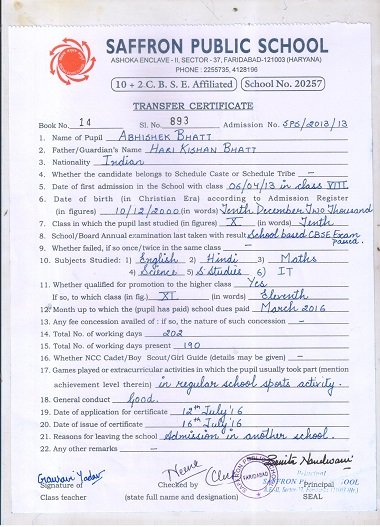 SAFFRON PUBLIC SCHOOL
ASHOKA ENCLAVE - II, SECTOR - 37, FARIDABAD-121003 (HARYANA)
PHONE : 2255735, 4128196
10 + 2 C. B. S. E. Affiliated School No. 20257
TRANSFER CERTIFICATE
Book No. 14 Sl. No. 893 Admission No. SPS/2013/13
1. Name of Pupil Abhishek Bhatt
2. Father/Guardian's Name Hari Kishan Bhatt
3. Nationality Indian
4. Whether the candidate belongs to Schedule Caste or Schedule Tribe –
5. Date of first admission in the School with class 06/04/13 in class VIII
6. Date of birth (in Christian Era) according to Admission Register
(in figures) 10/12/2000 (in words) Tenth December Two Thousand
7. Class in which the pupil last studied (in figures) X (in words) Tenth
8. School/Board Annual examination last taken with result School based CBSE Exam
passed.
9. Whether failed, if so once/twice in the same class –
10. Subjects Studied : 1) English 2) Hindi 3) Maths
4) Science 5) S.Studies 6) IT
11. Whether qualified for promotion to the higher class Yes
If so, to which class (in fig.) XI (in words) Eleventh
12. Month up to which the (pupil has paid) school dues paid March 2016
13. Any fee concession availed of : if so, the nature of such concession –
14. Total No. of working days 202
15. Total No. of working days present 190
16. Whether NCC Cadet/Boy Scout/Girl Guide (details may be given) –
17. Games played or extracurricular activities in which the pupil usually took part (mention
achievement level therein) in regular school sports activity.
18. General conduct Good.
19. Date of application for certificate 12th July'16
20. Date of issue of certificate 16th July'16
21. Reasons for leaving the school Admission in another school.
22. Any other remarks –
Gaurav Yadav
Signature of Checked by Principal
Class teacher (state full name and designation) SEAL
FARIDABAD